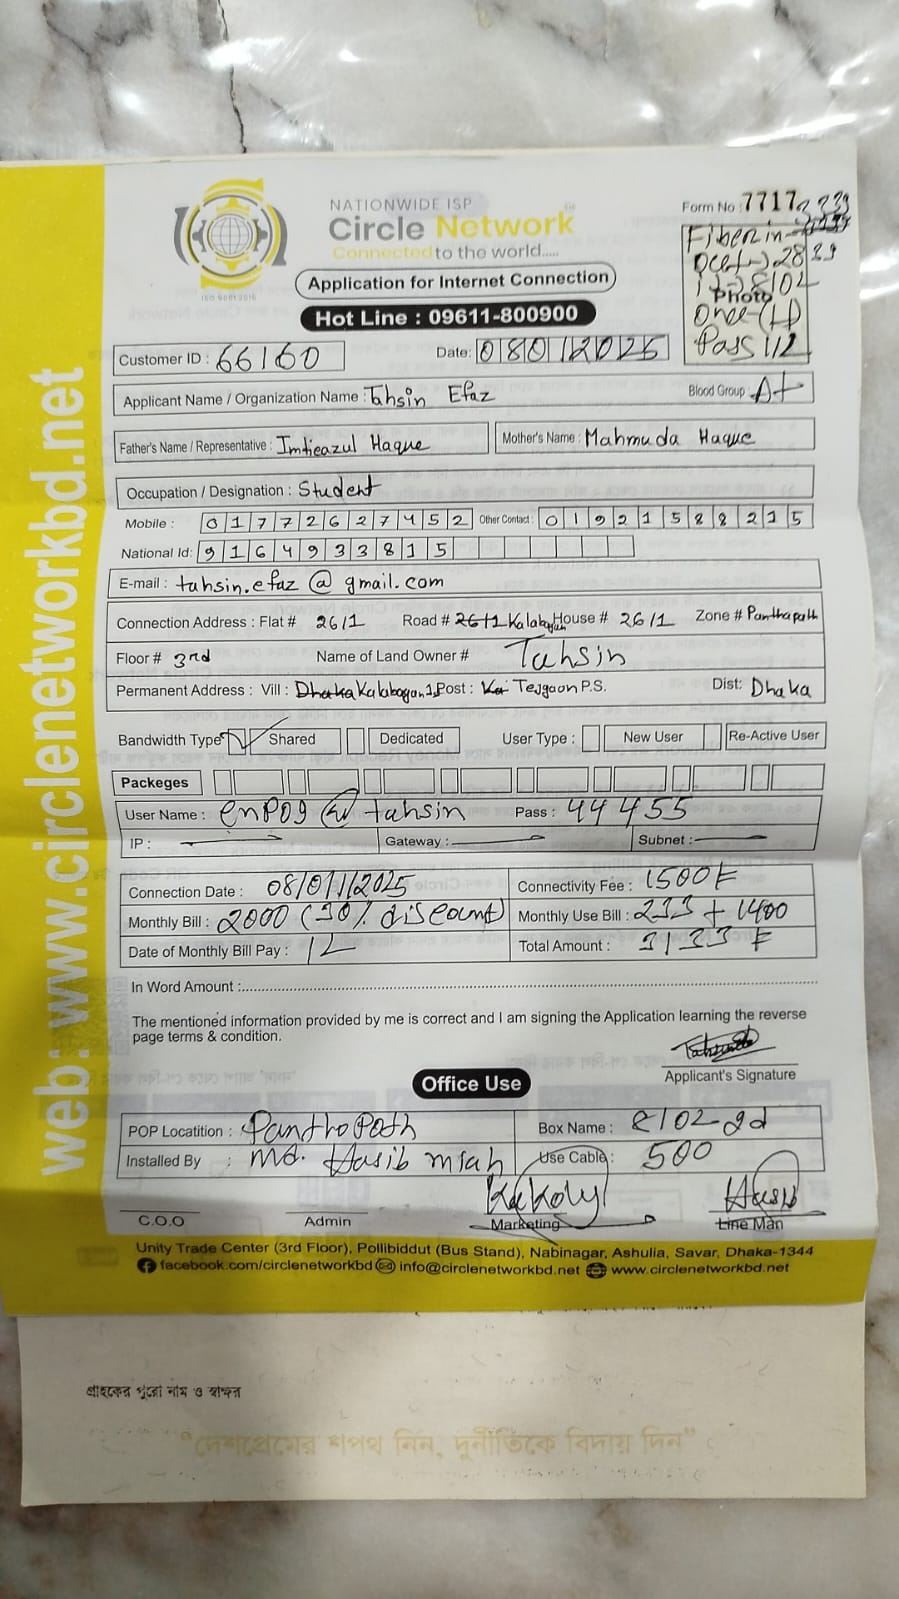 NATIONWIDE ISP
Circle Network
Connected to the world.....
ISO 9001:2015
Application for Internet Connection
Hot Line : 09611-800900
Form No : 7717
Fiber in
28
8102
Photo
Once-(H)
Pass 112
Customer ID : 66160
Date: 08012025
Applicant Name / Organization Name : Tahsin Efaz
Blood Group : A+
Father's Name / Representative : Imtieazul Haque
Mother's Name : Mahmuda Haque
Occupation / Designation : Student
Mobile : 01772627452 Other Contact : 01921588215
National Id: 9164933815
E-mail : tahsin.efaz@gmail.com
Connection Address : Flat # 26/1 Road # 26/1 Kalabagan House # 26/1 Zone # Panthapath
Floor # 3rd Name of Land Owner # Tahsin
Permanent Address : Vill : Dhaka Kalabagan 1, Post : Tejgaon P.S. Dist: Dhaka
Bandwidth Type Shared Dedicated User Type : New User Re-Active User
Packeges
User Name : enP09 @ tahsin Pass : 44455
IP : Gateway : Subnet :
Connection Date : 08/01/2025 Connectivity Fee : 1500৳
Monthly Bill : 2000 (30% discount) Monthly Use Bill : 233 + 1400
Date of Monthly Bill Pay : 12 Total Amount : 3133৳
In Word Amount :
The mentioned information provided by me is correct and I am signing the Application learning the reverse
page terms & condition.
Applicant's Signature
Office Use
POP Locatition : PanthoPath Box Name : 8102-2d
Installed By : Md. Hasib Miah Use Cable : 500
Kakoly Hasib
C.O.O Admin Marketing Line Man
Unity Trade Center (3rd Floor), Pollibiddut (Bus Stand), Nabinagar, Ashulia, Savar, Dhaka-1344
facebook.com/circlenetworkbd info@circlenetworkbd.net www.circlenetworkbd.net
web: www.circlenetworkbd.net
গ্রাহকের পুরো নাম ও স্বাক্ষর
"দেশপ্রেমের শপথ নিন, দুর্নীতিকে বিদায় দিন"